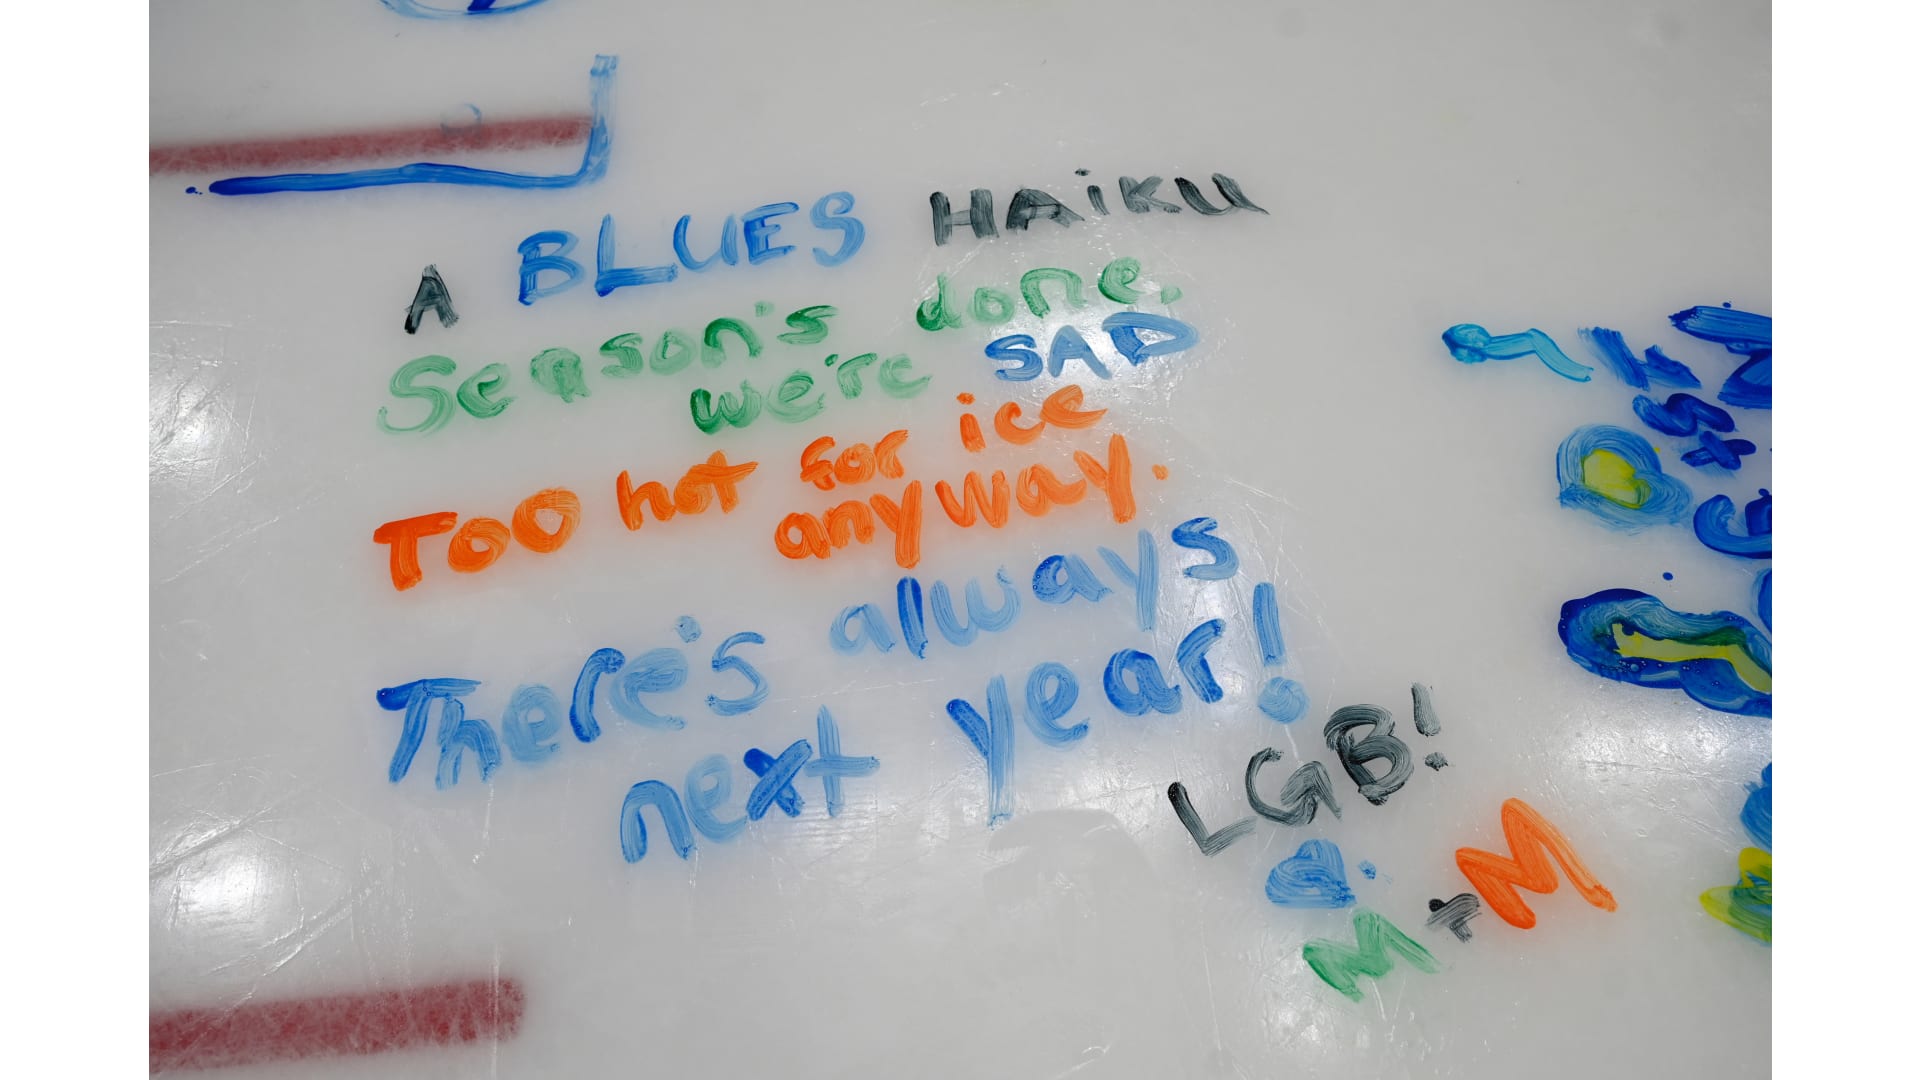 A BLUES HAiKU
Season's done.
we're SAD
Too hot for ice
anyway.
There's always
next year!
LGB!
M+M